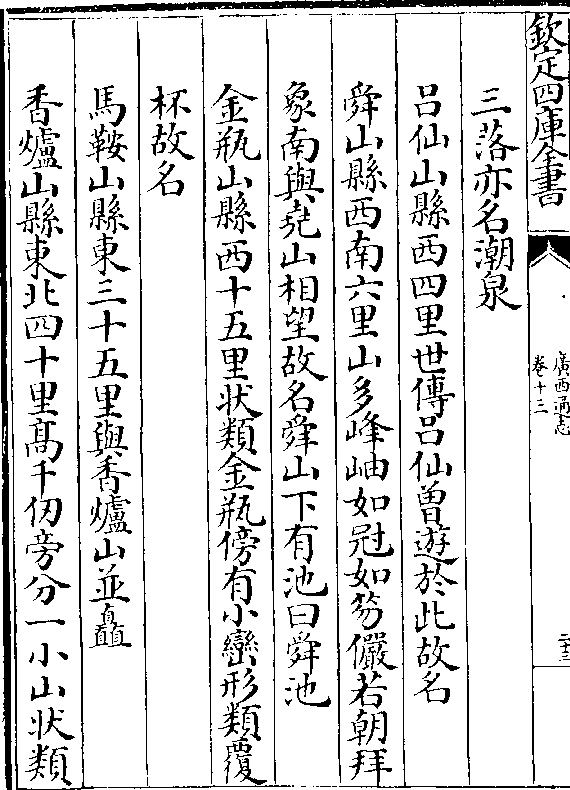 欽定四庫全書
廣西通志
卷十三
二十三
三落亦名潮泉
吕仙山縣西四里世傳吕仙曾遊於此故名
舜山縣西南六里山多峰岫如冠如笏儼若朝拜
象南與堯山相望故名舜山下有池曰舜池
金瓶山縣西十五里狀類金瓶傍有小巒形類覆
杯故名
馬鞍山縣東三十五里與香爐山並矗
香爐山縣東北四十里髙千仭旁分一小山狀類